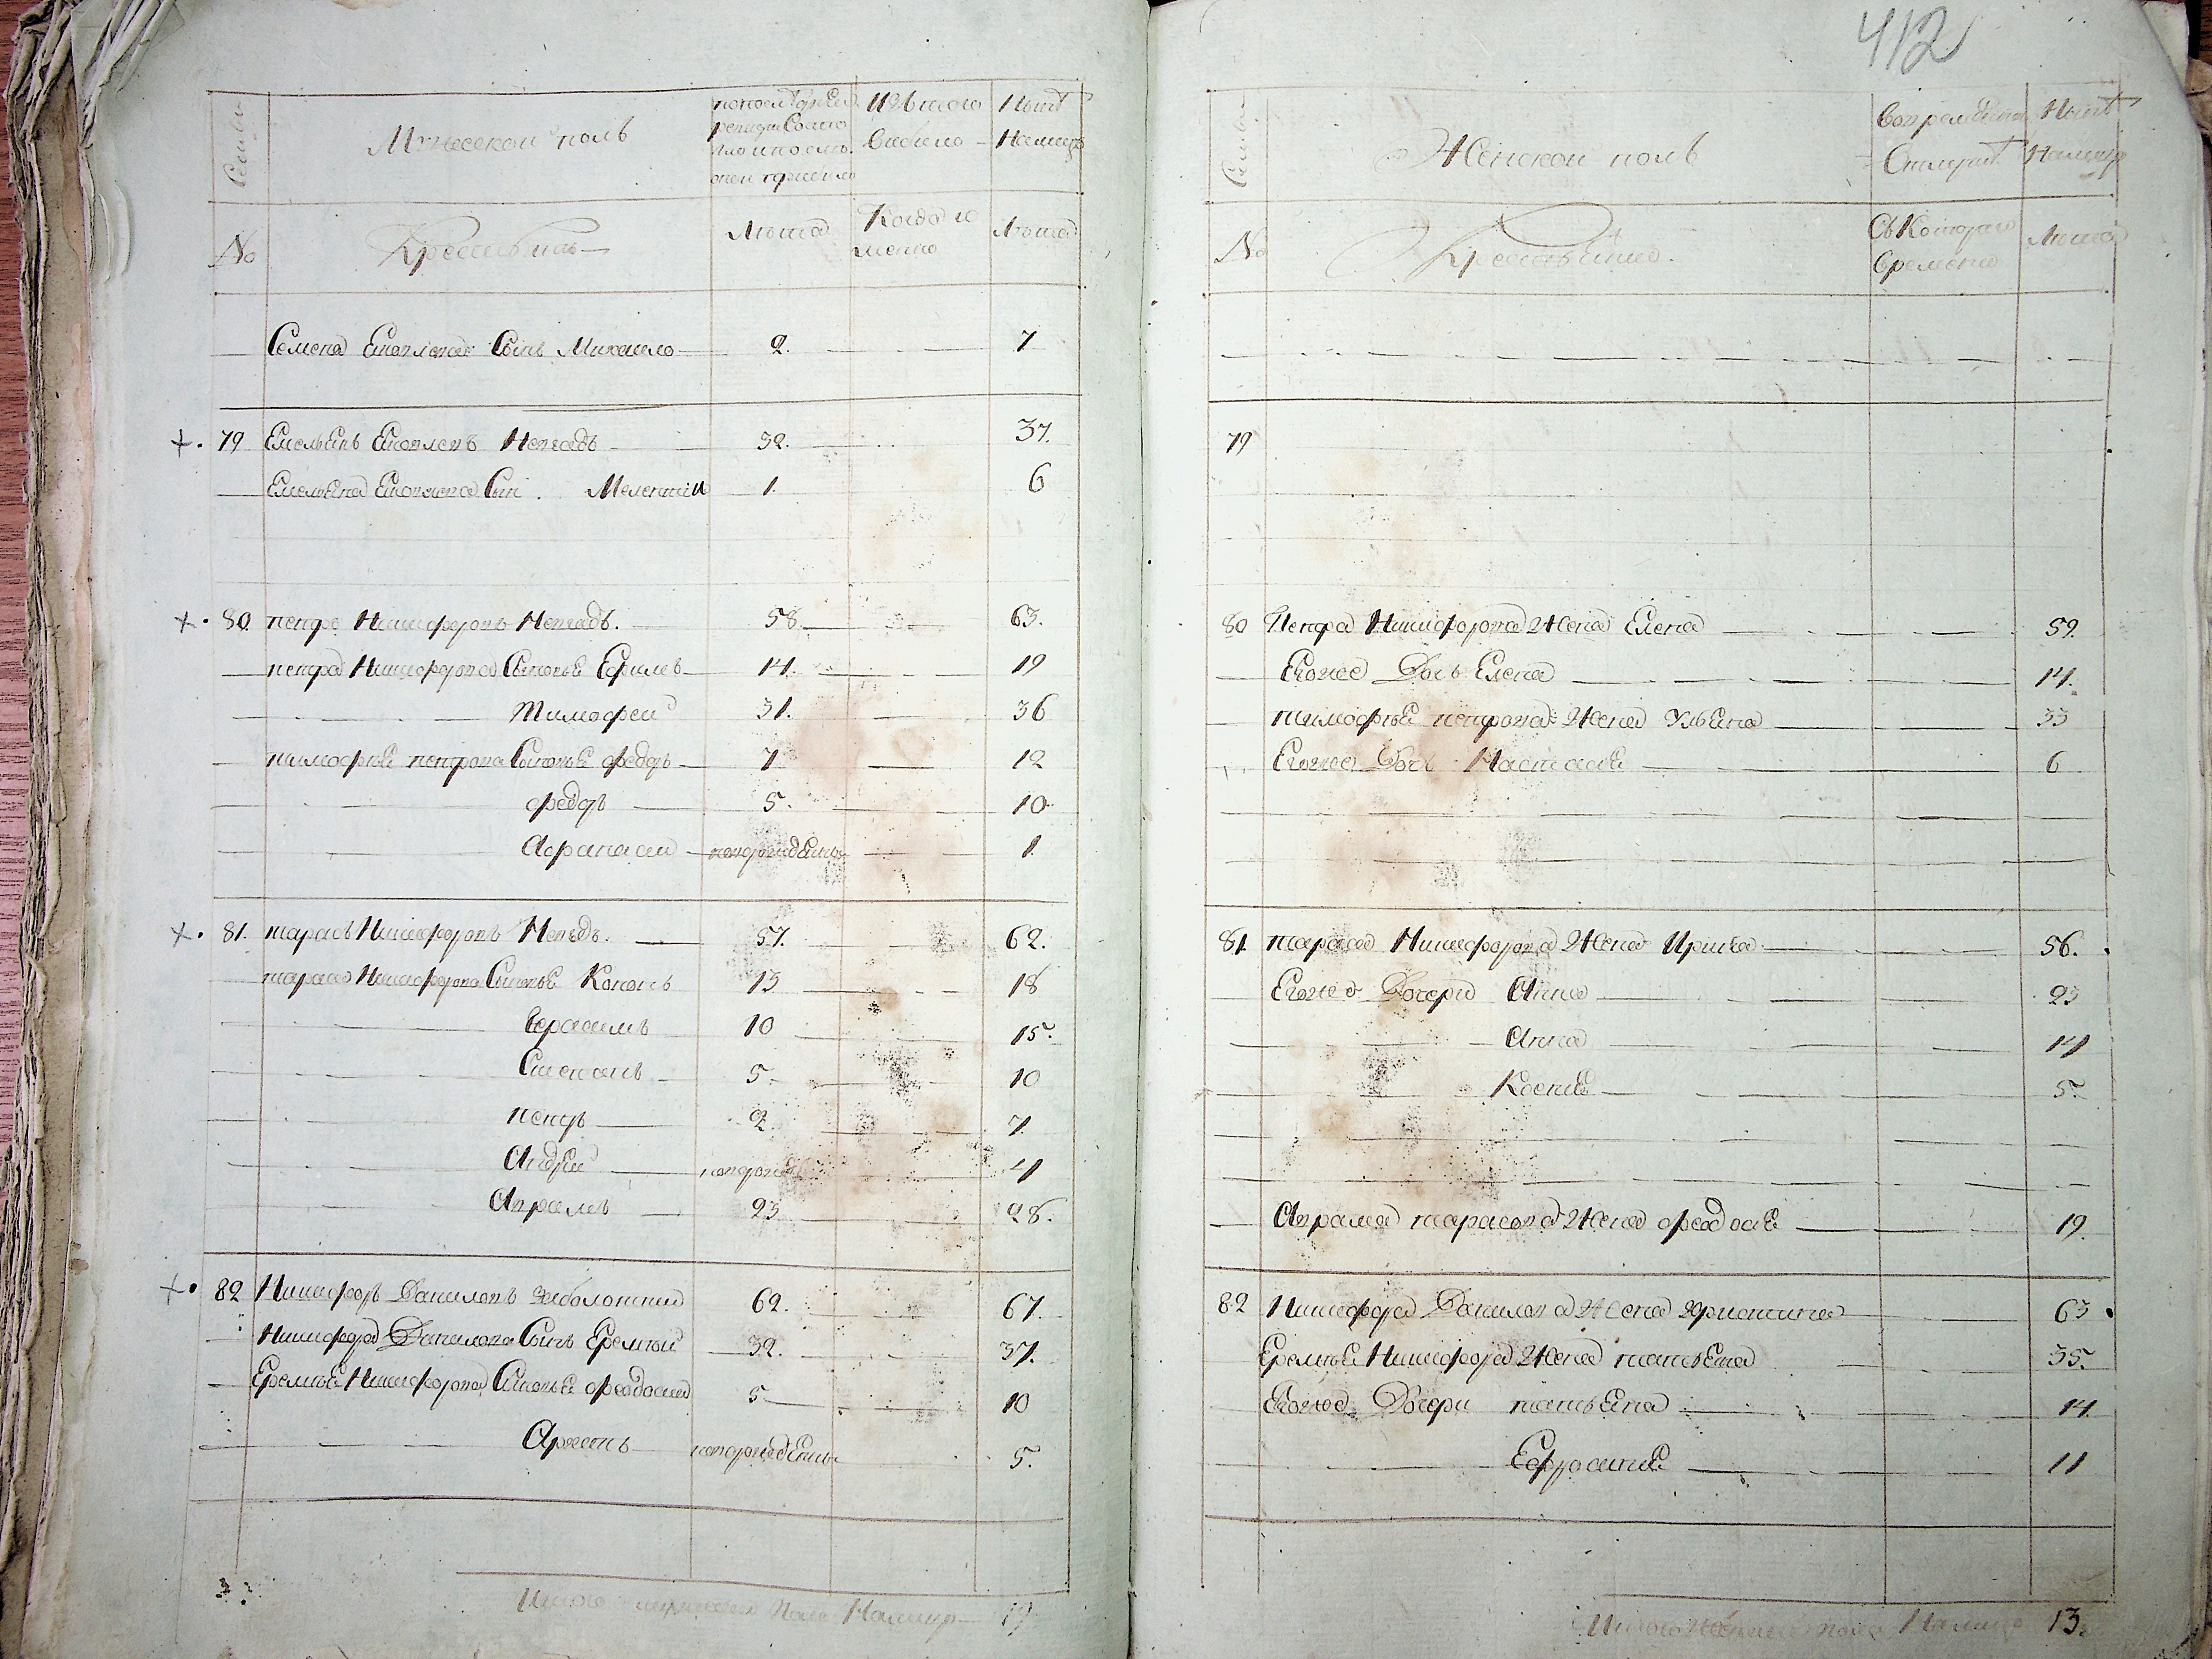 412
Семьи
Мужескои полъ
по последнеи
ревизи Состо
яло и после
онои прибыло
Изъ того
Выбыло
Нынѣ
На лицо
№
Крестьянъ
Лѣта
Когда и
менно
Лѣта
Семена Евтиева Сынъ Михаило 2. 7
79 Емельянъ 32. 37.
Емельяна Сын Мелентии 1. 6
80 петръ Никифоровъ 58. 63.
петра Никифорова Сыновья Ефимъ 14. 19
Тимофеи 31. 36
тимофѣя петрова Сыновья федоръ 7 12
федоръ 5. 10
Афанасии новорожденъ 1.
81. тарасъ Никифоровъ 57. 62.
тараса Никифорова Сыновья Кононъ 13 18
Герасимъ 10 15.
Степанъ 5 10
петръ 2. 7.
Андреи новорожд 4
Аврамъ 23 28.
82 Никифоръ Даниловъ Заболотнии 62. 67.
Никифора Данилова Сынъ Еремѣи 32. 37.
Еремѣя Никифорова Сыновья феодосии 5 10
новорожденъ 5.
Итого мужеска пола На лицо 19
Семьи
Женскои полъ
Во временнои
Отлучкѣ
Нынѣ
На лицо
№
Крестьянъ
Съ Котораго
времени
Лѣта
79
80 Петра Никифорова Жена Елена 59.
Евоже Дочь Елена 14.
тимофѣя петрова Жена Ульяна 33
Евоже Дочь Настасия 6
81 тараса Никифорова Жена Ирина 56.
Евоже Дочери Анна 23
Анна 14
Ксения 5.
Аврама тарасова Жена феодосия 19.
82 Никифора Данилова Жена 63
Еремѣя Никифорова Жена татьяна 35.
Евоже Дочери татьяна 14.
Ефросиния 11
Итого Женска пола На лицо 13.